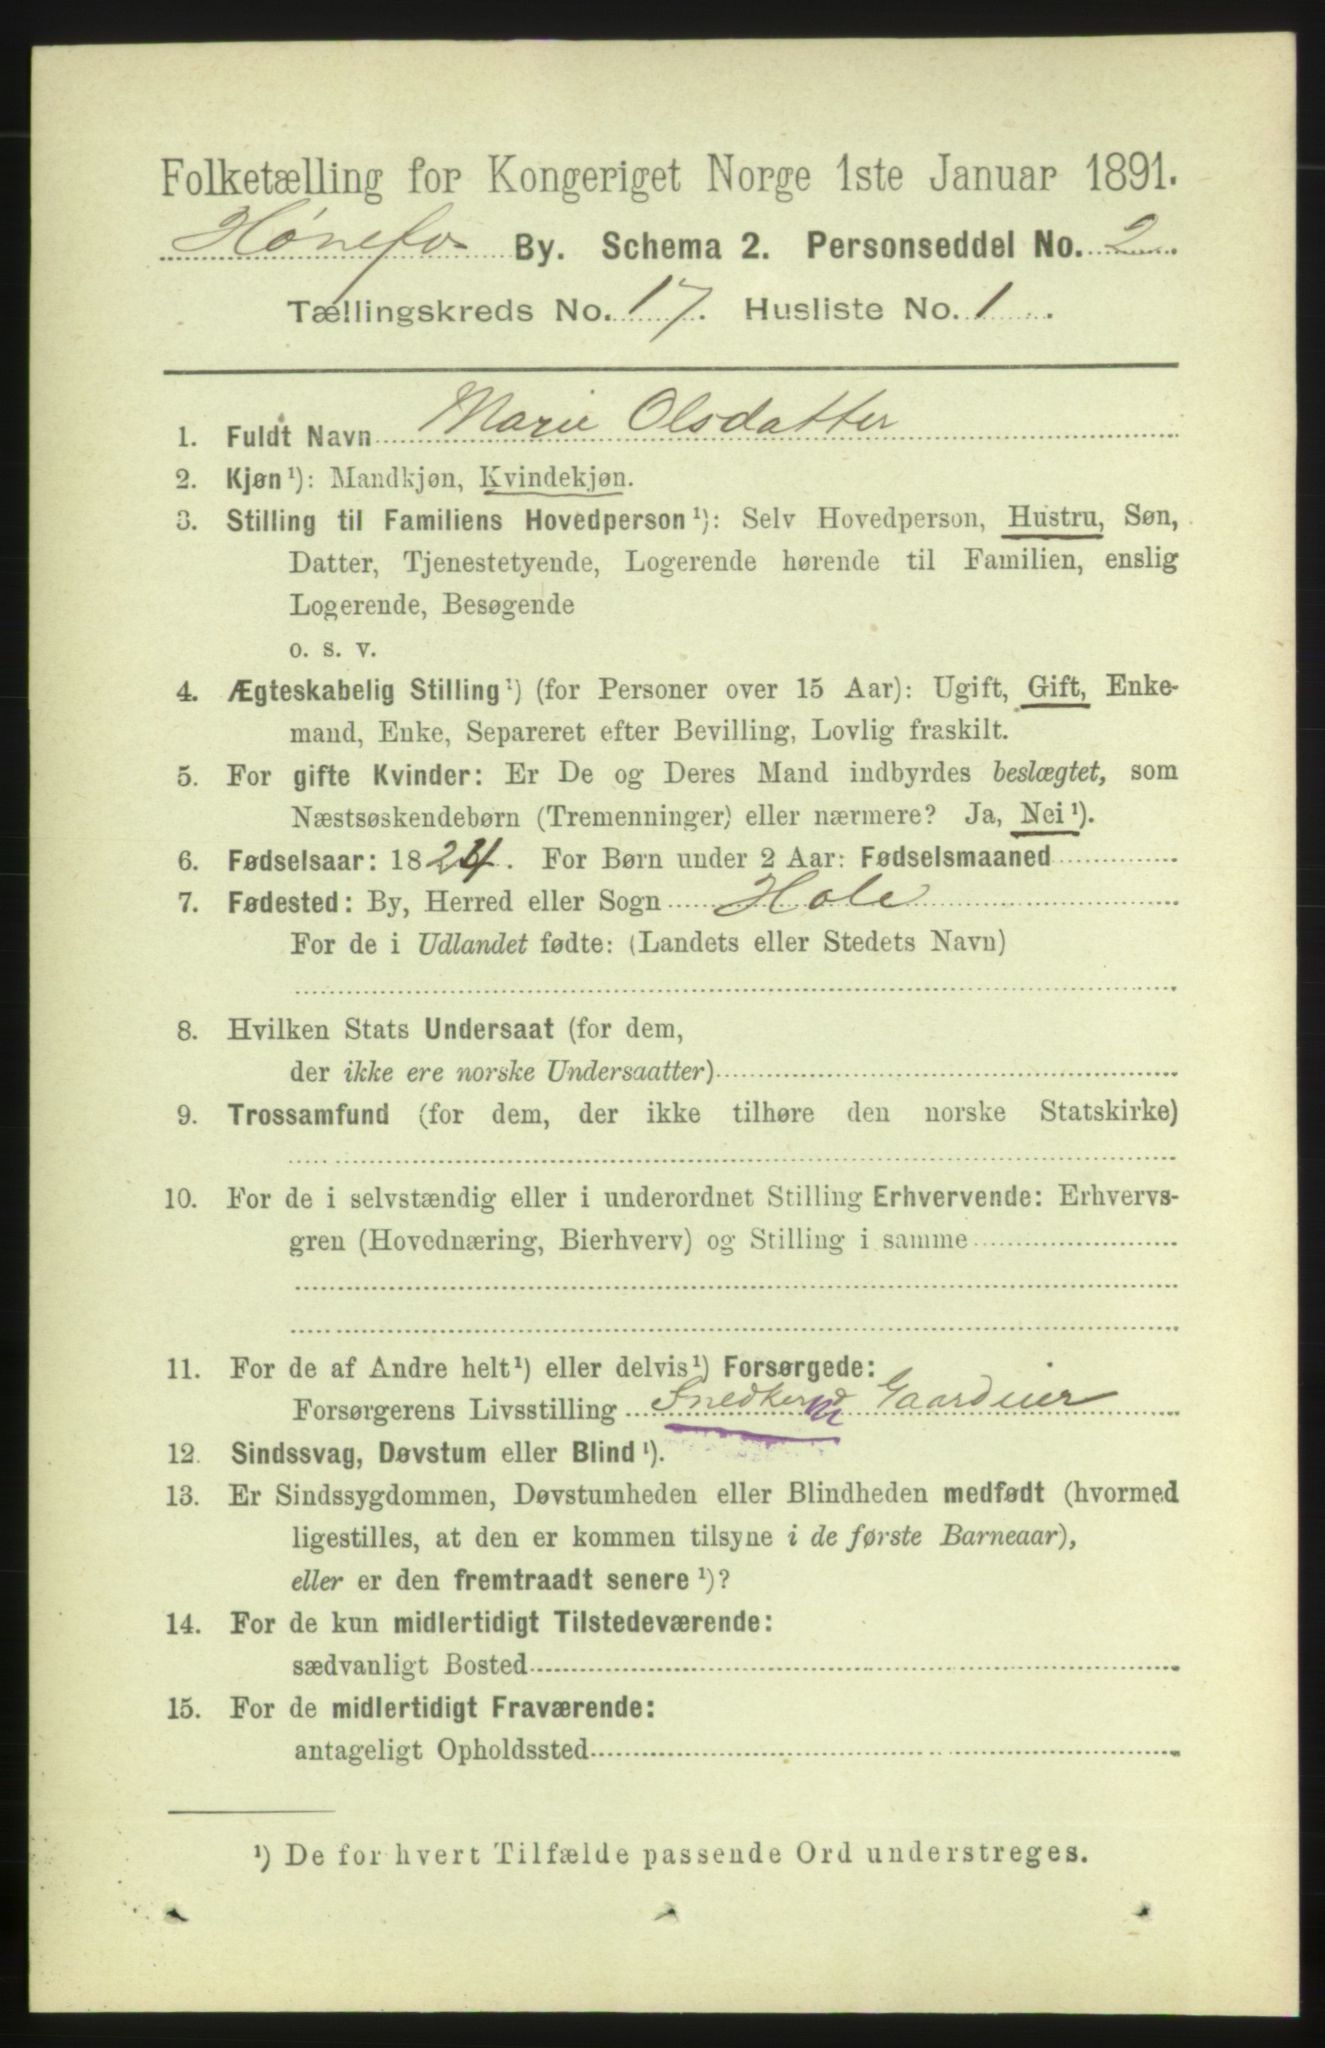 Folketælling for Kongeriget Norge 1ste Januar 1891.
Hønefos By. Schema 2. Personseddel No. 2
Tællingskreds No. 17. Husliste No. 1.
1. Fuldt Navn Marie Olsdatter
2. Kjøn¹): Mandkjøn, Kvindekjøn.
3. Stilling til Familiens Hovedperson¹): Selv Hovedperson, Hustru, Søn,
Datter, Tjenestetyende, Logerende hørende til Familien, enslig
Logerende, Besøgende
o. s. v.
4. Ægteskabelig Stilling¹) (for Personer over 15 Aar): Ugift, Gift, Enke-
mand, Enke, Separeret efter Bevilling, Lovlig fraskilt.
5. For gifte Kvinder: Er De og Deres Mand indbyrdes beslægtet, som
Næstsøskendebørn (Tremenninger) eller nærmere? Ja, Nei¹).
6. Fødselsaar: 1824. For Børn under 2 Aar: Fødselsmaaned
7. Fødested: By, Herred eller Sogn Hole
For de i Udlandet fødte: (Landets eller Stedets Navn)
8. Hvilken Stats Undersaat (for dem,
der ikke ere norske Undersaatter)
9. Trossamfund (for dem, der ikke tilhøre den norske Statskirke)
10. For de i selvstændig eller i underordnet Stilling Erhvervende: Erhvervs-
gren (Hovednæring, Bierhverv) og Stilling i samme
11. For de af Andre helt¹) eller delvis¹) Forsørgede:
Forsørgerens Livsstilling Snedker Gaardeier
12. Sindssvag, Døvstum eller Blind¹).
13. Er Sindssygdommen, Døvstumheden eller Blindheden medfødt (hvormed
ligestilles, at den er kommen tilsyne i de første Barneaar),
eller er den fremtraadt senere¹)?
14. For de kun midlertidigt Tilstedeværende:
sædvanligt Bosted
15. For de midlertidigt Fraværende:
antageligt Opholdssted
¹) De for hvert Tilfælde passende Ord understreges.